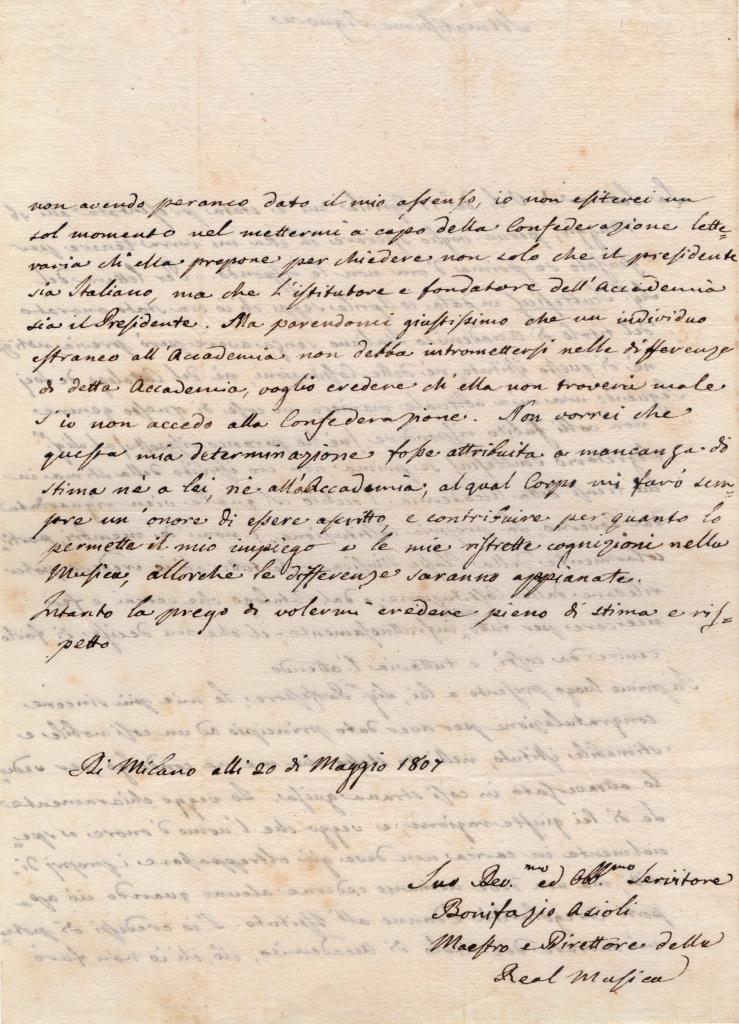 non avendo peranco dato il mio assenso, io non esiterei un
sol momento nel mettermi a capo della Confederazione lette=
raria ch'ella propone per chiedere non solo che il presidente
sia Italiano, ma che l'istitutore e fondatore dell'Accademia
sia il Presidente. Ma parendomi giustissimo che un individuo
estraneo all'Accademia non debba intromettersi nelle differenze
di detta Accademia, voglio credere ch'ella non troverà male
s'io non accedo alla Confederazione. Non vorrei che
questa mia determinazione fosse attribuita a mancanza di
stima nè a lei, nè all'Accademia, al qual Corpo mi farò sem=
pre un'onore di essere ascritto, e contribuire per quanto lo
permette il mio impiego e le mie ristrette cognizioni nella
Musica, allorchè le differenze saranno appianate.
Intanto la prego di volermi credere pieno di stima e ris=
petto
Di Milano alli 20 di Maggio 1807
Suo Dev.mo ed Obb.mo Servitore
Bonifazio Asioli
Maestro e Direttore della
Real Musica